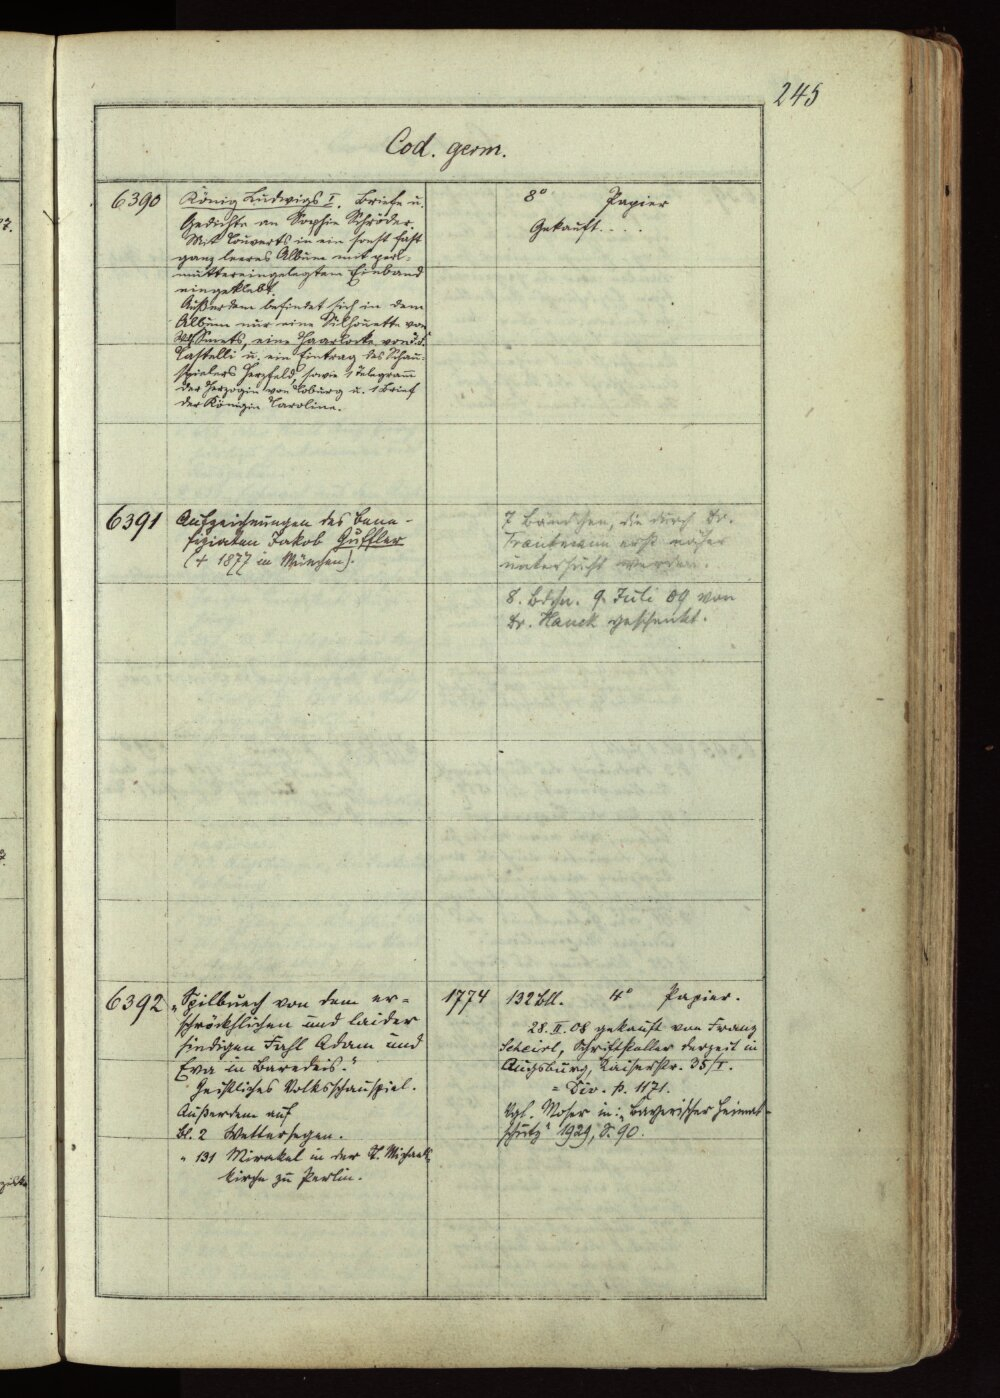 245
Cod. germ.
6390
König Ludwigs I. Briefe u.
Gedichte an Sophie Schröder.
Mit Couverts in ein sonst fast
ganz leeres Album mit perl-
muttereingelegtem Einband
eingeklebt.
Außerdem befindet sich in dem
Album nur eine Silhouette von
Wilh. Smets, eine Haarlocke von J. F.
Castelli u. ein Eintrag des Schau-
spielers Herzfeld, sowie 1 Telegramm
der Herzogin von Coburg u. 1 Brief
der Königin Caroline.
8° Papier
Gekauft....
6391
Aufzeichnungen des Bene-
fiziaten Jakob Guffler
(† 1877 in München).
7 Bändchen, die durch Dr.
Trautmann erst näher
untersucht werden.
8. Bdchn. 9. Juli 09 von
Dr. Hauck geschenkt.
6392
„Spilbuech von dem er-
schröckhlichen und laider
sindigen Fahl Adam und
Eva in Baredeis."
Geistliches Volksschauspiel.
Außerdem auf
Bl. 2 Wettersegen.
" 131 Mirakel in der St. Michaels
kirche zu Perlin.
1774
132 Bll. 4° Papier.
28. II. 08 gekauft von Franz
Scheirl, Schriftsteller derzeit in
Augsburg, Kaiserstr. 35/I.
= Div. p. 1171.
Vgl. Moser in: „Bayerischer Heimat-
schutz" 1929, S. 90.